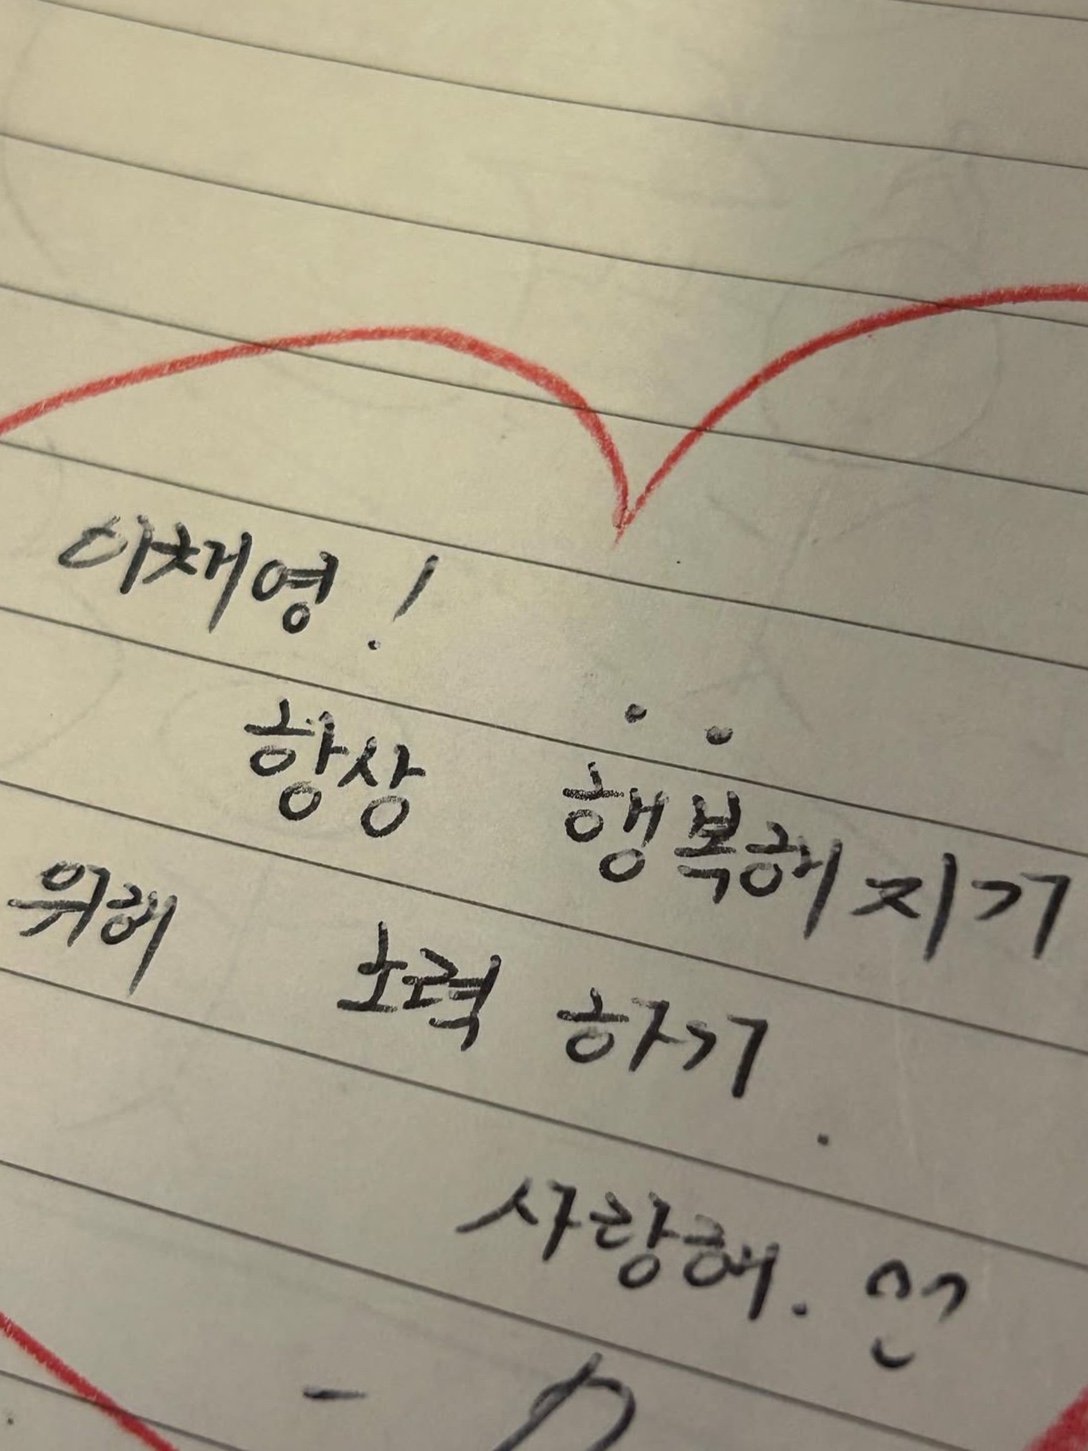 이채영!
항상 행복해지기
위해 노력 하기.
사랑해.